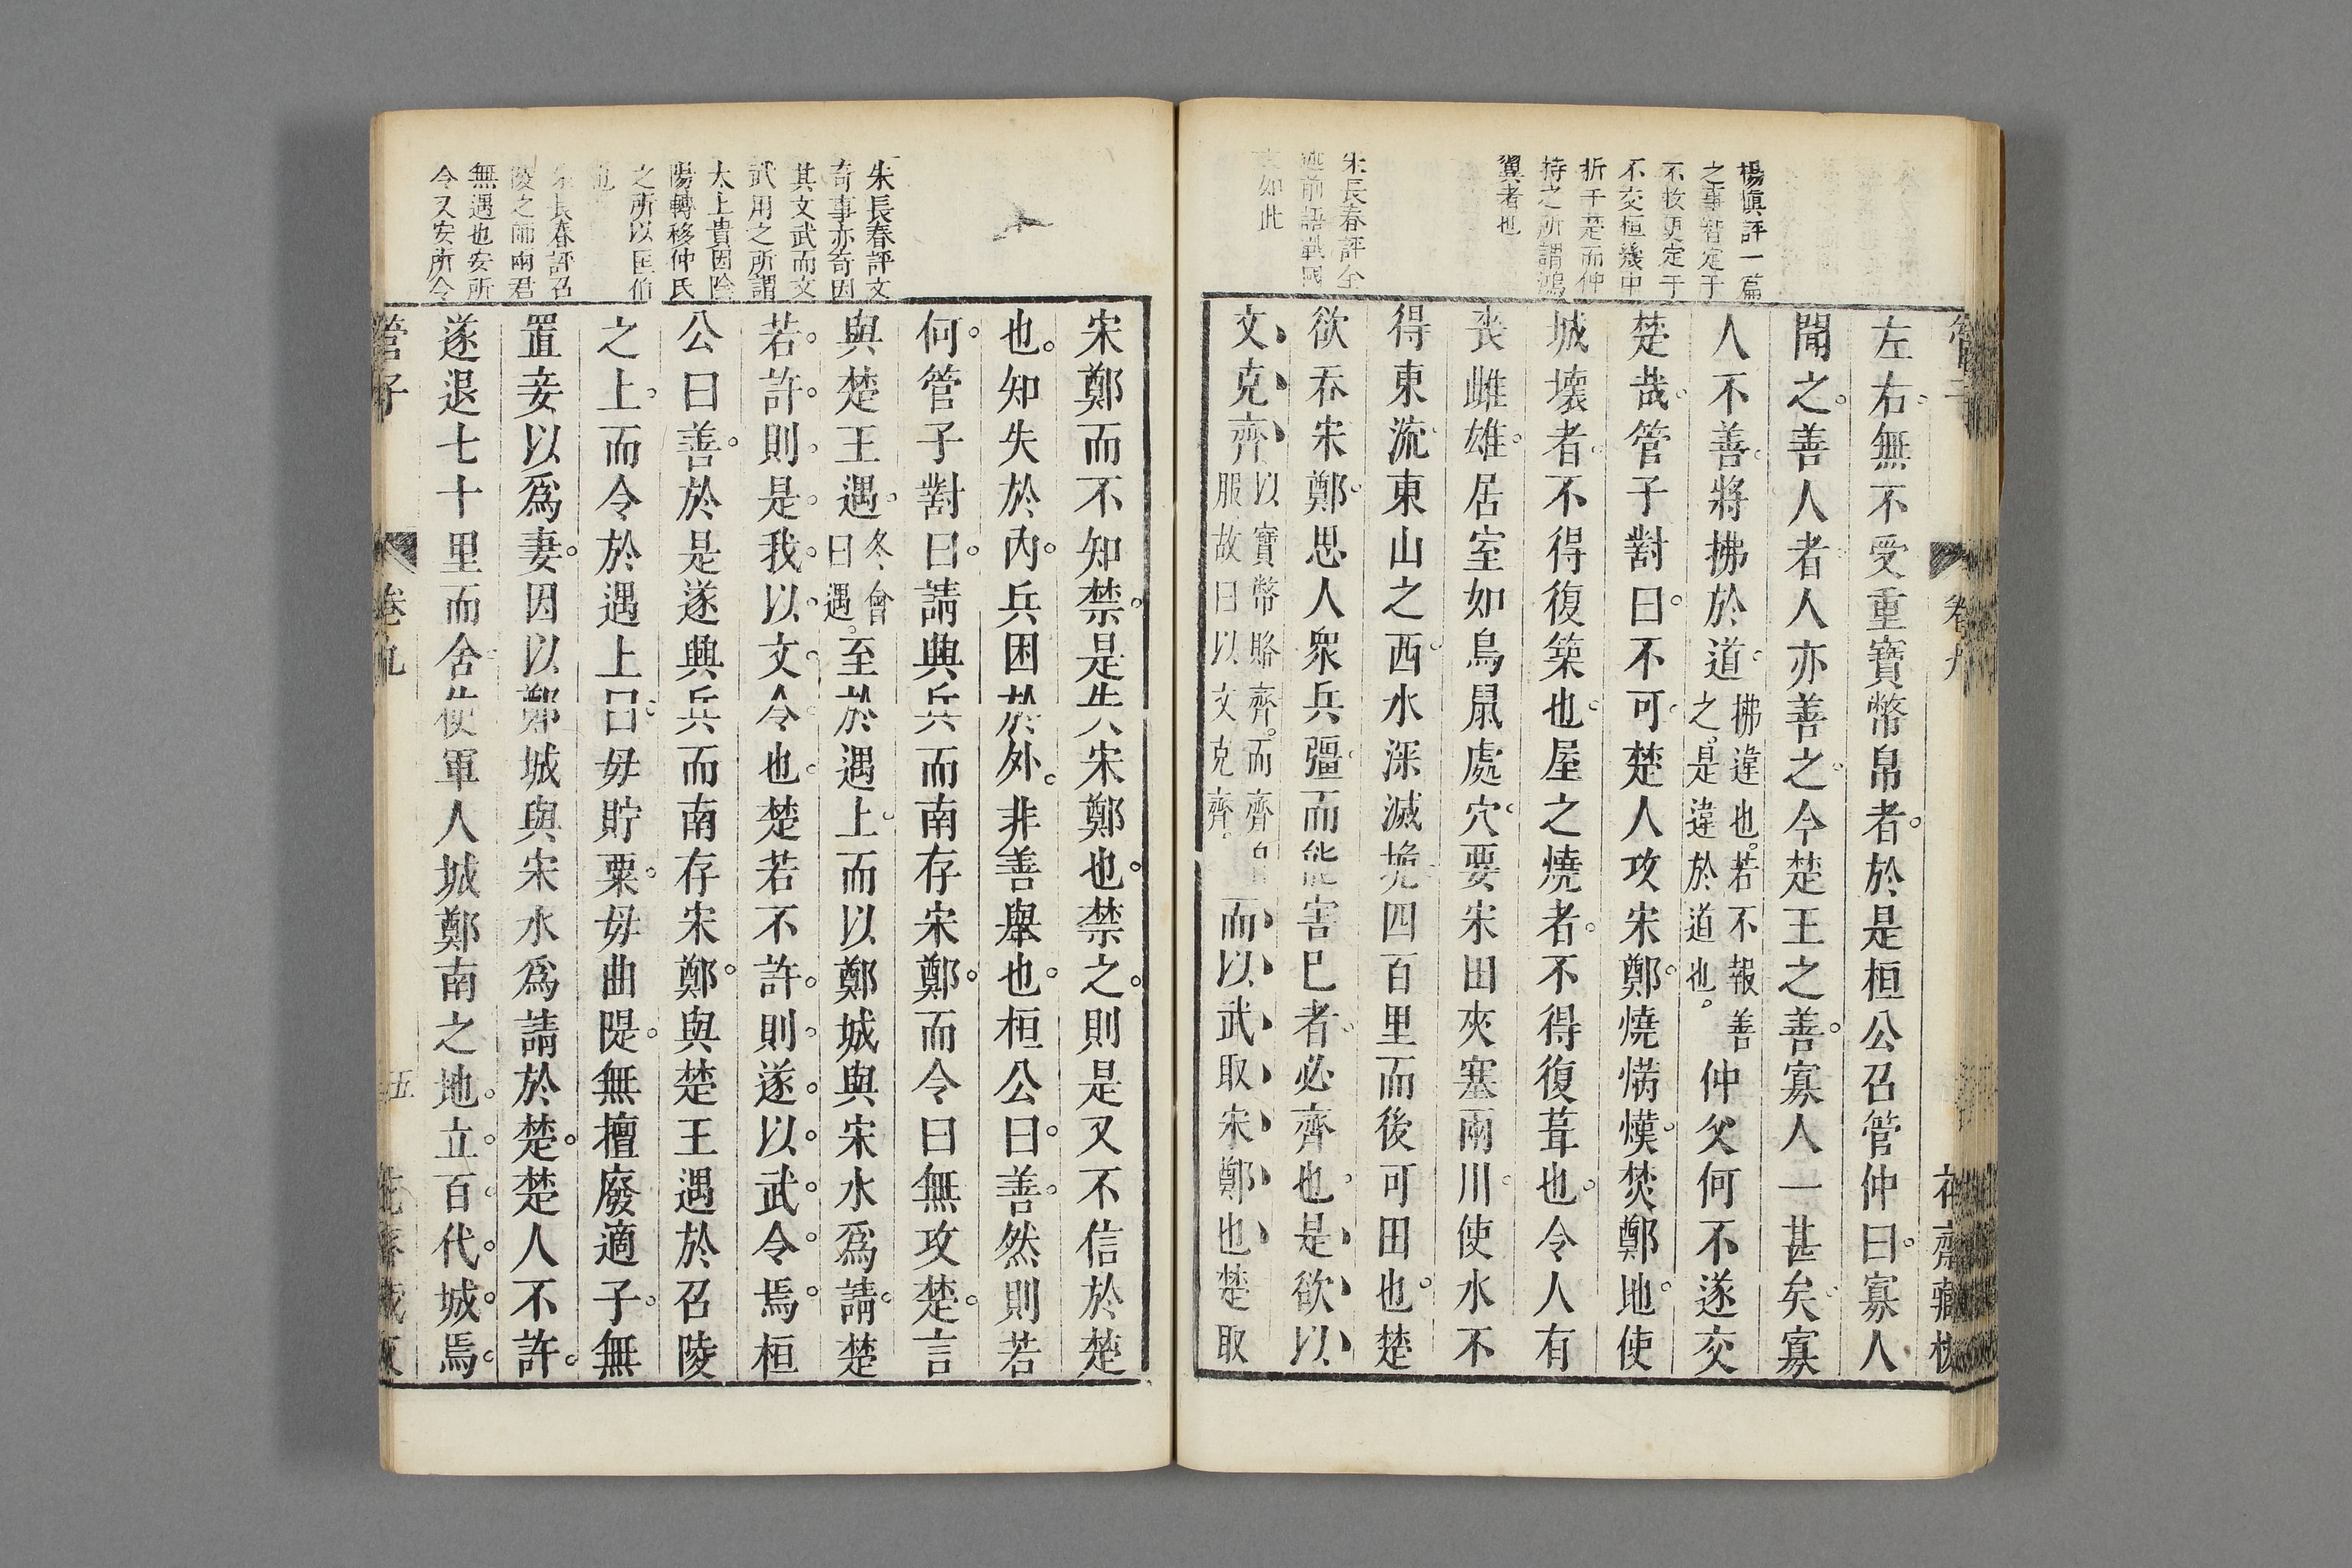 楊慎評一篇
之事智定于
不牧更定于
不交桓幾中
折于楚而仲
持之所謂鴻
翼者也
朱長春評全
述前語戰國
如此
左右無不受重寶幣帛者於是桓公召管仲曰寡人
聞之善人者人亦善之今楚王之善寡人一甚矣寡
人不善將拂於道拂違也若不報善之是違於道也仲父何不遂交
楚哉管子對曰不可楚人攻宋鄭燒焫熯焚鄭地使
城壞者不得復築也屋之燒者不得復葺也令人有
喪雌雄居室如鳥鼠處穴要宋田夾塞兩川使水不
得東流東山之西水深滅垝四百里而後可田也楚
欲吞宋鄭思人衆兵彊而能害已者必齊也是欲以
文克齊以寶幣賂齊而齊自服故曰以文克齊而以武取宋鄭也楚取
宋鄭而不知禁是失宋鄭也禁之則是又不信於楚
也知失於內兵困於外非善舉也桓公曰善然則若
何管子對曰請興兵而南存宋鄭而令曰無攻楚言
與楚王遇冬會曰遇至於遇上而以鄭城與宋水爲請楚
若許則是我以文令也楚若不許則遂以武令焉桓
公曰善於是遂興兵而南存宋鄭與楚王遇於召陵
之上而令於遇上曰毋貯粟毋曲隄無擅廢適子無
置妾以爲妻因以鄭城與宋水爲請於楚楚人不許
遂退七十里而舍使軍人城鄭南之地立百代城焉
朱長春評文
奇事亦奇因
其文武而文
武用之所謂
太上貴因陰
陽轉移仲氏
之所以匡伯
也
朱長春評召
陵之師兩君
無遇也安所
令又安所令
管子
卷九
五
花齋藏板